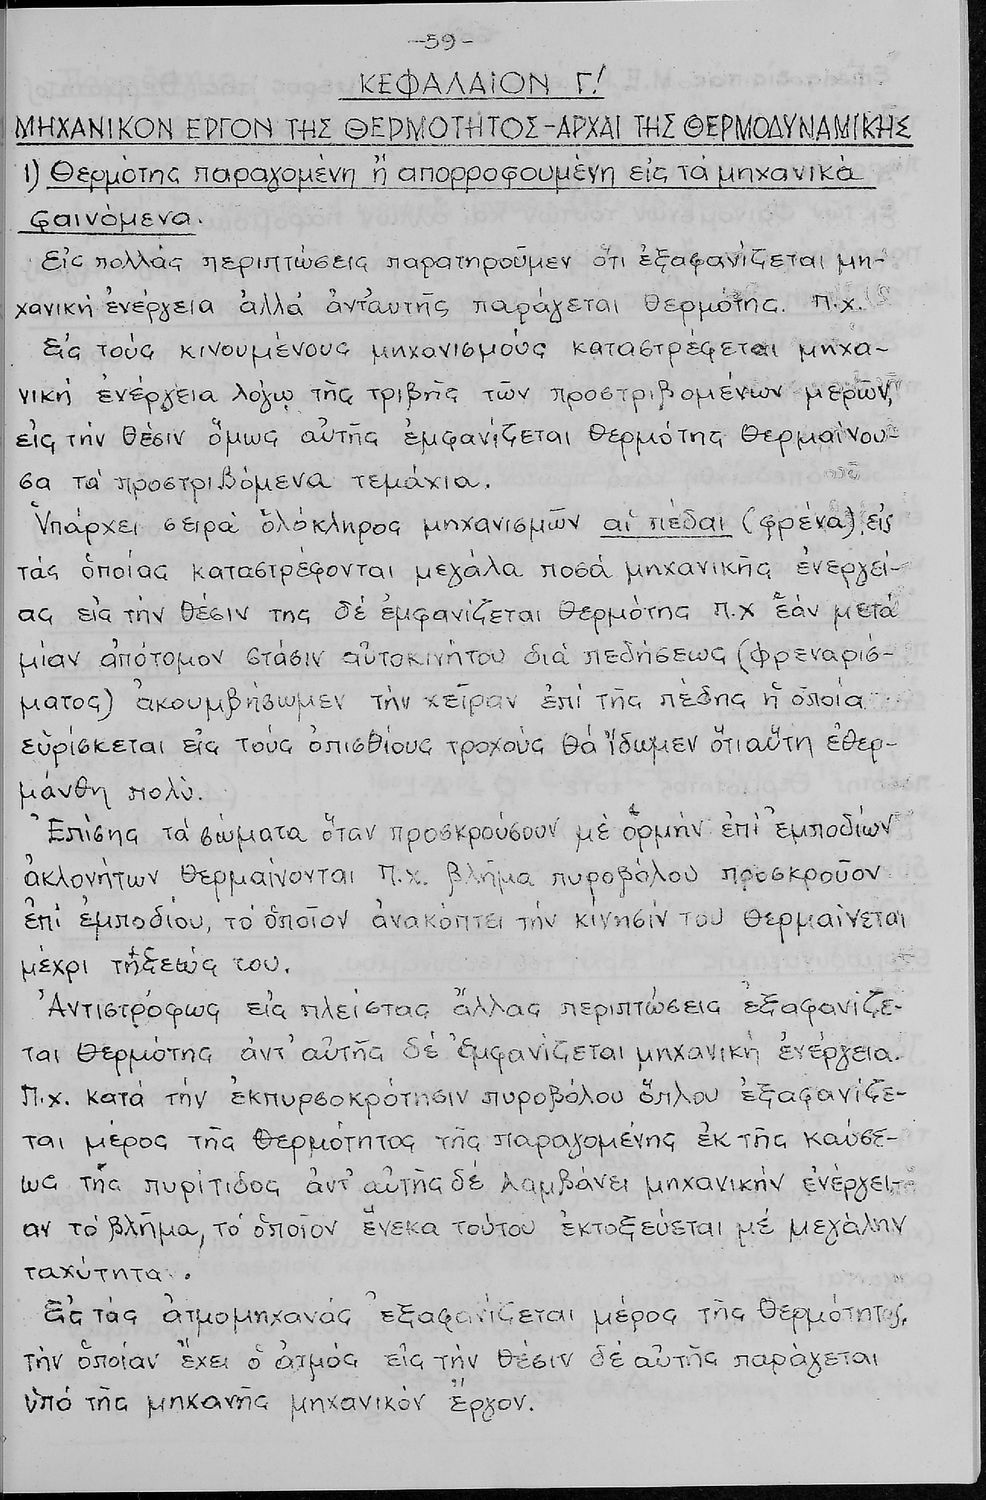 -59-
ΚΕΦΑΛΑΙΟΝ Γ!
ΜΗΧΑΝΙΚΟΝ ΕΡΓΟΝ ΤΗΣ ΘΕΡΜΟΤΗΤΟΣ-ΑΡΧΑΙ ΤΗΣ ΘΕΡΜΟΔΥΝΑΜΙΚΗΣ
1) Θερμότης παραγομένη ἤ απορροφουμένη εἰς τά μηχανικά
φαινόμενα.
Εἰς πολλάς περιπτώσεις παρατηροῦμεν ὅτι ἐξαφανίζεται μη-
χανική ἐνέργεια ἀλλά ἀντ'αυτῆς παράγεται θερμότης. π.χ.
Εἰς τούς κινουμένους μηχανισμούς καταστρέφεται μηχα-
νική ἐνέργεια λόγῳ τῆς τριβῆς τῶν προστριβομένων μερῶν,
εἰς τήν θέσιν ὅμως αὐτῆς ἐμφανίζεται θερμότης θερμαίνου-
σα τά προστριβόμενα τεμάχια.
Ὑπάρχει σειρά ὁλόκληρος μηχανισμῶν αἱ πέδαι (φρένα) εἰς
τάς ὁποίας καταστρέφονται μεγάλα ποσά μηχανικῆς ἐνεργεί-
ας εἰς τήν θέσιν της δέ ἐμφανίζεται θερμότης π.χ ἐάν μετά
μίαν ἀπότομον στάσιν αὐτοκινήτου διά πεδήσεως (φρεναρίσ-
ματος) ἀκουμβήσωμεν τήν χεῖραν ἐπί τῆς πέδης ἡ ὁποία
εὑρίσκεται εἰς τούς ὀπισθίους τροχούς θά ἴδωμεν ὅτι αὕτη ἐθερ-
μάνθη πολύ.
Ἐπίσης τά σώματα ὅταν προσκρούσουν μέ ὁρμήν ἐπί ἐμποδίων
ἀκλονήτων θερμαίνονται π.χ. βλῆμα πυροβόλου προσκροῦον
ἐπί ἐμποδίου, τό ὁποῖον ἀνακόπτει τήν κίνησίν του θερμαίνεται
μέχρι τήξεώς του.
Ἀντιστρόφως εἰς πλείστας ἄλλας περιπτώσεις ἐξαφανίζε-
ται θερμότης ἀντ' αὐτῆς δέ ἐμφανίζεται μηχανική ἐνέργεια.
Π.χ. κατά τήν ἐκπυρσοκρότησιν πυροβόλου ὅπλου ἐξαφανίζε-
ται μέρος τῆς θερμότητος τῆς παραγομένης ἐκ τῆς καύσε-
ως τῆς πυρίτιδος ἀντ' αὐτῆς δέ λαμβάνει μηχανικήν ἐνέργει-
αν τό βλῆμα, τό ὁποῖον ἕνεκα τούτου ἐκτοξεύεται μέ μεγάλην
ταχύτητα.
Εἰς τάς ἀτμομηχανάς ἐξαφανίζεται μέρος τῆς θερμότητος,
τήν ὁποίαν ἔχει ὁ ἀτμός εἰς τήν θέσιν δέ αὐτῆς παράγεται
ὑπό τῆς μηχανῆς μηχανικόν ἔργον.